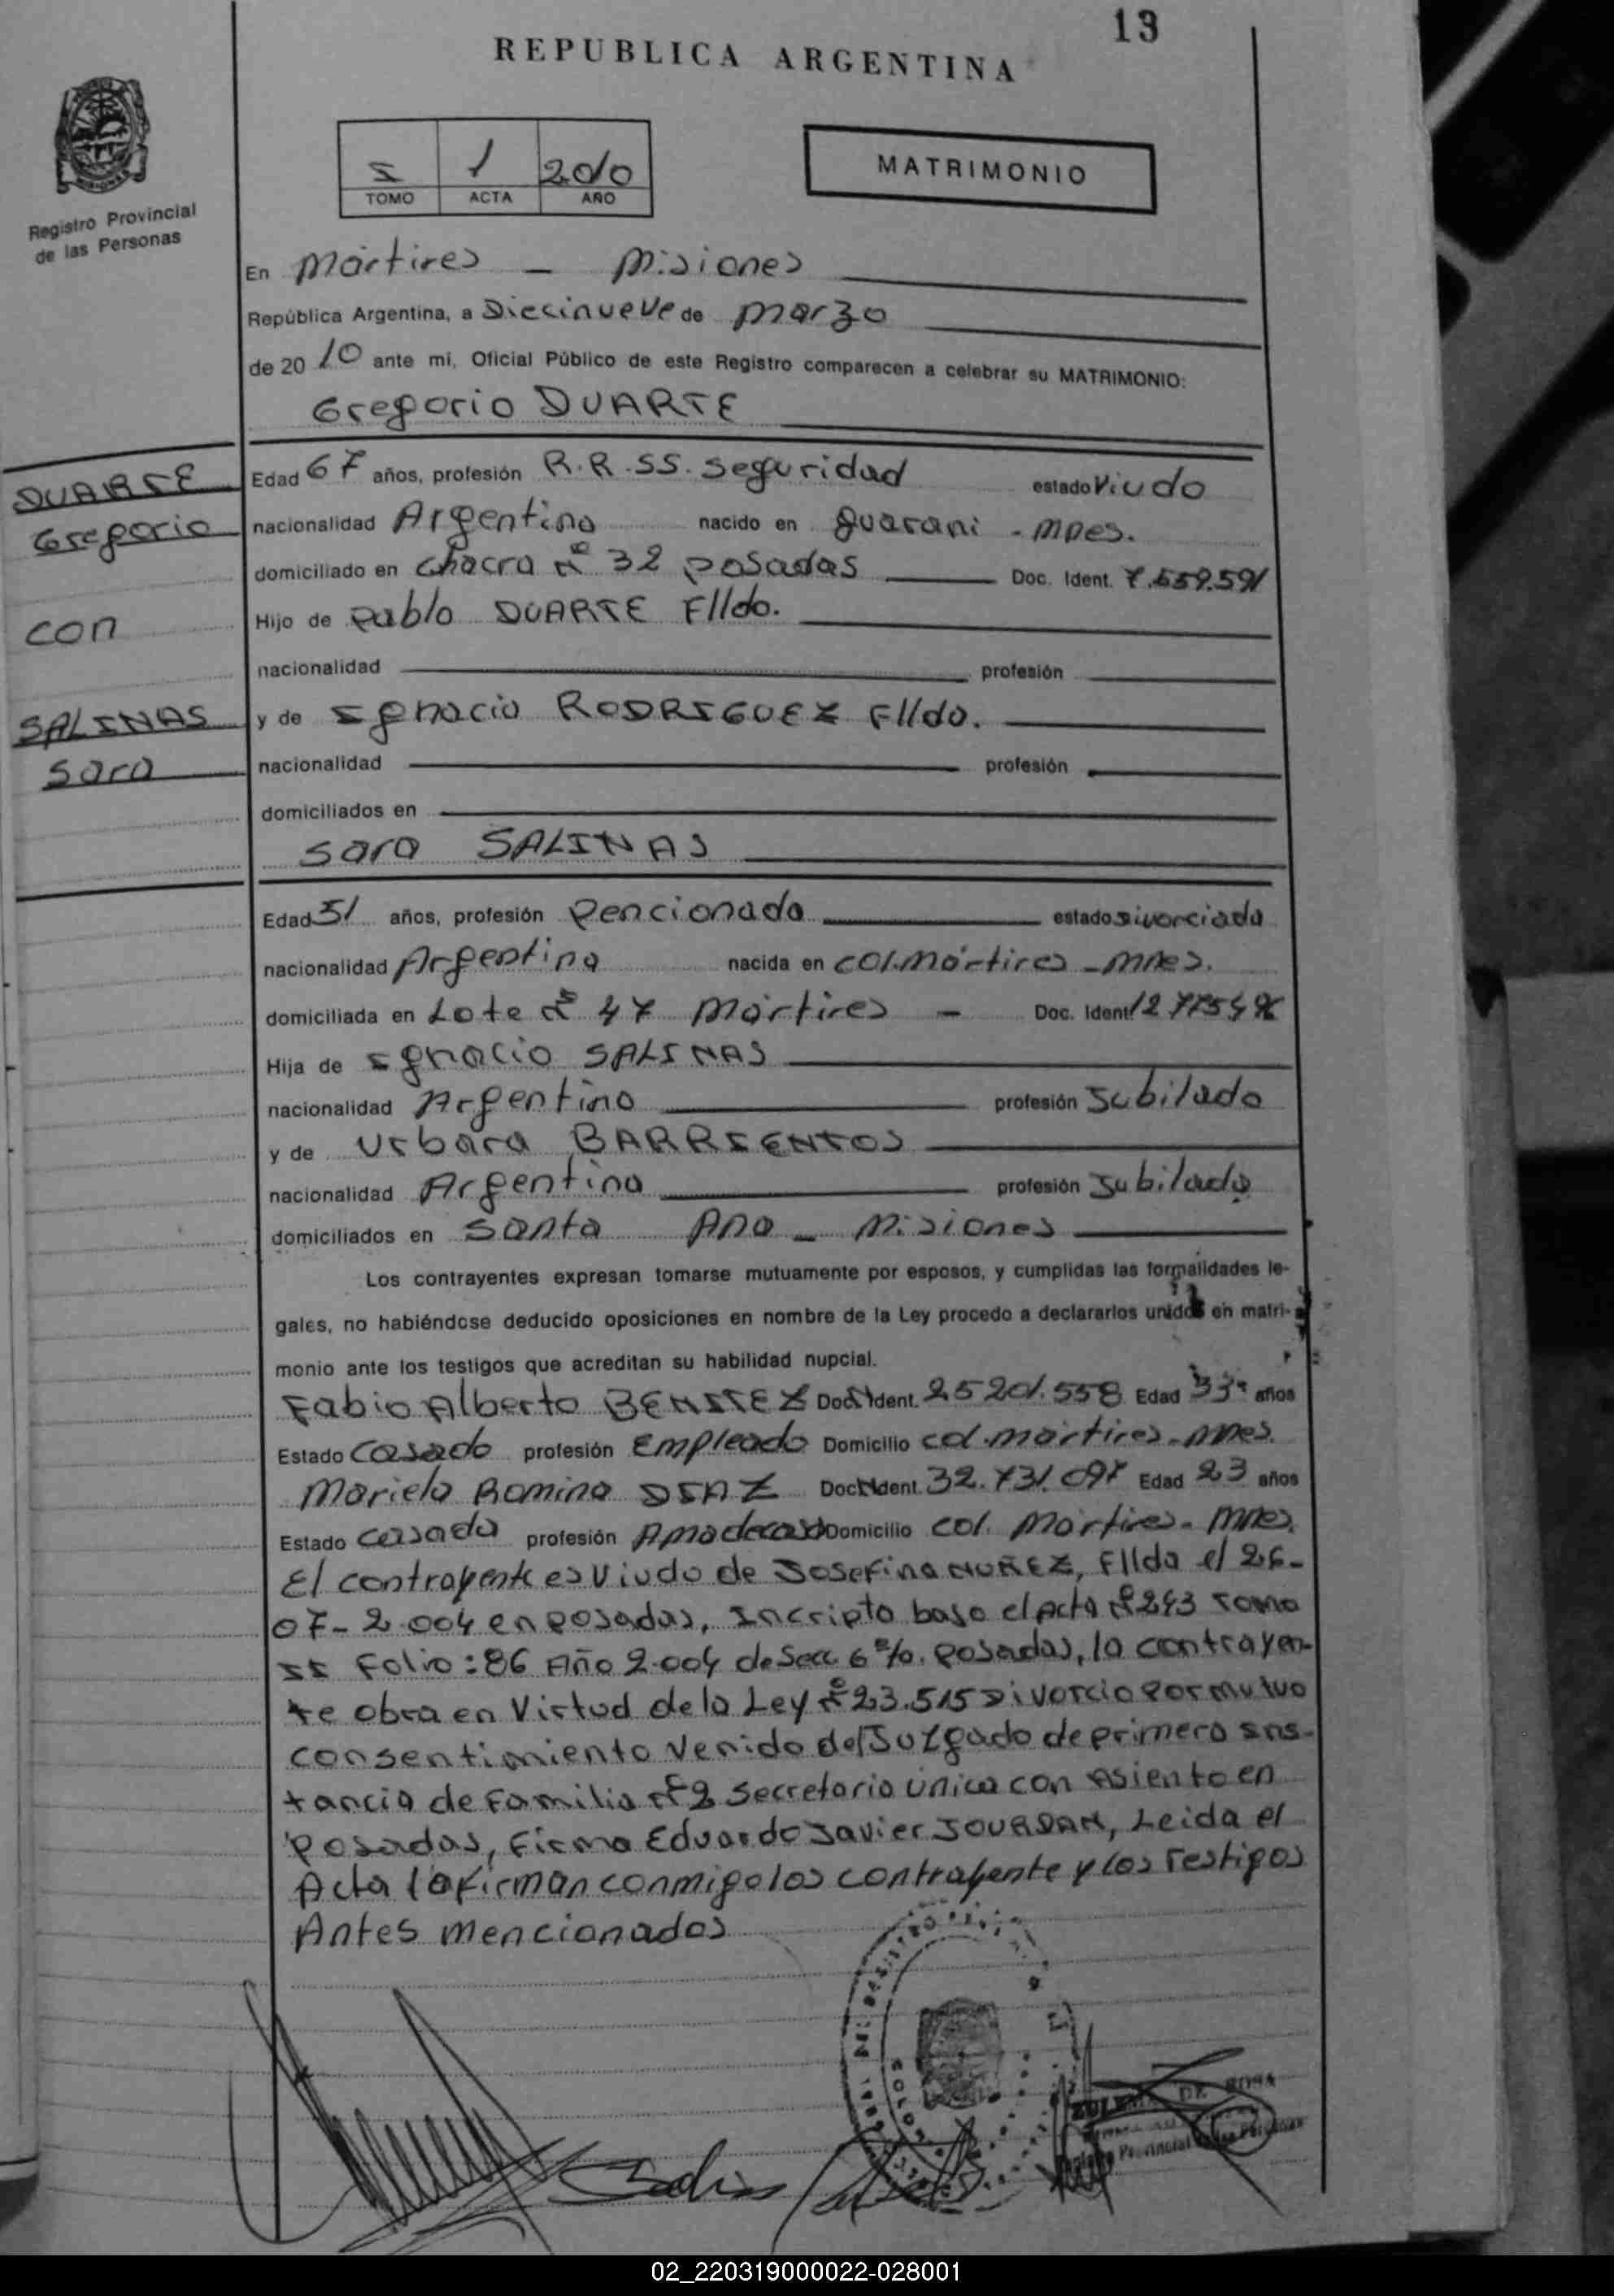 13
REPUBLICA ARGENTINA
Registro Provincial
de las Personas
I 1 2010
TOMO ACTA AÑO
MATRIMONIO
En Mártires - Misiones
República Argentina, a Diecinueve de Marzo
de 2010 ante mí, Oficial Público de este Registro comparecen a celebrar su MATRIMONIO:
Gregorio DUARTE
DUARTE
Gregorio
con
SALINAS
Sara
Edad 67 años, profesión R.R.SS. Seguridad estado Viudo
nacionalidad Argentina nacido en Guarani - Mnes.
domiciliado en Chacra Nº 32 Posadas Doc. Ident. 7.559.591
Hijo de Pablo DUARTE Flldo.
nacionalidad profesión
y de Ignacia RODRIGUEZ Flldo.
nacionalidad profesión
domiciliados en
Sara SALINAS
Edad 51 años, profesión Pencionada estado Divorciada
nacionalidad Argentina nacida en Col. Mártires - Mnes.
domiciliada en Lote Nº 47 Mártires - Doc. Ident.
Hija de Ignacio SALINAS
nacionalidad Argentina profesión Jubilado
y de Urbana BARRIENTOS
nacionalidad Argentina profesión Jubilada
domiciliados en Santa Ana - Misiones
Los contrayentes expresan tomarse mutuamente por esposos, y cumplidas las formalidades le-
gales, no habiéndose deducido oposiciones en nombre de la Ley procedo a declararlos unidos en matri-
monio ante los testigos que acreditan su habilidad nupcial.
Fabio Alberto BENITEZ Doc. Ident. 25201.558 Edad 33 años
Estado Casado profesión Empleado Domicilio Col. Mártires - Mnes.
Mariela Romina DIAZ Doc. Ident. 32.731.097 Edad 23 años
Estado Casada profesión Domicilio Col. Mártires - Mnes.
El contrayente es Viudo de Josefina NUÑEZ, Fllda el 26-
07-2.004 en Posadas, Incripto bajo el Acta Nº 243 Tomo
II Folio: 86 Año 2.004 de Secc. 6º/o. Posadas, la contrayen-
te obra en Virtud de la Ley Nº 23.515 Divorcio por mutuo
consentimiento Venido del Juzgado de primera Ins-
tancia de Familia Nº 2 Secretaria única con Asiento en
Posadas, Firma Eduardo Javier JOURDAN, Leida el
Acta la firman conmigo los contrayente y los Testigos
Antes Mencionados
DE
Provincial
02_220319000022-028001